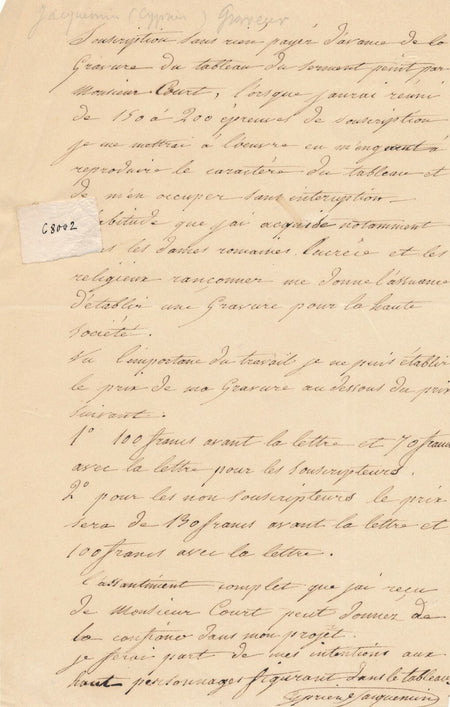 Jacquemin (Cyprien) Graveur
Souscription sans rien payer d'avance de la
Gravure du tableau du serment peint par
Monsieur Court, lorsque j'aurai réuni
de 150 a 200 épreuves de souscription
je me mettrai à l'oeuvre en m'engeant à
reproduire le caractère du tableau et
de m'en occuper sans interuption.
C8002
l'habitude que j'ai acquise notamment
dans les dames romaines, Lucrèce et les
religieux ranconner me donne l'assurance
d'établir une Gravure pour la haute
société.
Vu l'importance du travail je ne puis établir
le prix de ma Gravure au dessous du prix
suivant.
1º 100 francs avant la lettre et 70 francs
avec la lettre pour les souscripteurs.
2º pour les non souscripteurs le prix
sera de 130 francs avant la lettre et
100 francs avec la lettre.
l'assentiment complet que j'ai reçu
de Monsieur Court peut donner de
la confiance dans mon projet.
je ferai part de mes intentions aux
haut personnages figurant dans le tableau
Cyprien Jacquemin